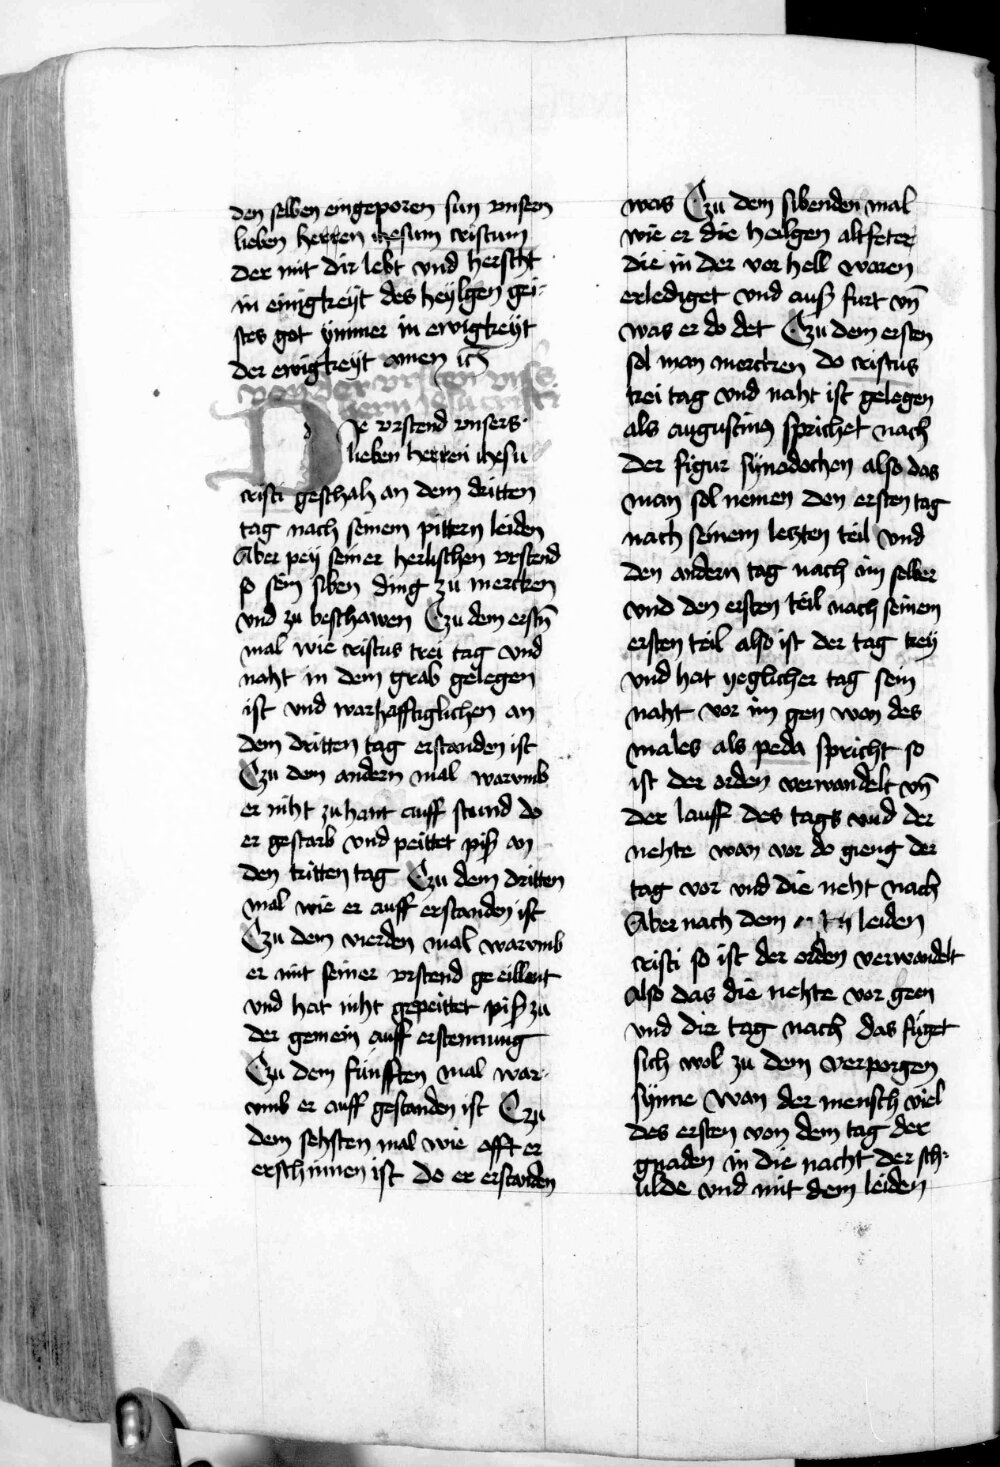 den selben eingeporen sun vnsern
lieben herren ihesum cristum
der mit dir lebt vnd herscht
in einigkeyt des heylgen gei-
stes got ymmer in ewigkeyt
der ewigkeyt amen
von der vrstend vnsers
hern ihesu cristi
Die vrstend vnsers
lieben herren ihesu
cristi geschah an dem dritten
tag nach seinem pittern leiden
Aber pey seiner herlischen vrstend
so sein siben ding zu mercken
vnd zu beschawen Czu dem erstn̄
mal wie cristus trei tag vnd
naht in dem grab gelegen
ist vnd warhafftiglichen an
dem dritten tag erstanden ist
Czu dem andern mal warumb
er niht zu hant auff stund do
er gestarb vnd peittet piß an
den tritten tag Czu dem dritten
mal wie er auff erstanden ist
Czu dem vierden mal warumb
er mit seiner vrstend geeillent
vnd hat niht gepeittet piß zu
der gemein auff erstennung
Czu dem fünfften mal war-
umb er auff gestanden ist Czu
dem sehsten mal wie offt er
erschinnen ist do er erstanden
was Czu dem sibenden mal
wie er die heilgen altfeter
die in der vor hell waren
erlediget vnd auß furt vn̄
was er do det Czu dem ersten
sol man mercken do cristus
trei tag vnd naht ist gelegen
als augustinus sprichet nach
der figur synodochen also das
man sol nemen den ersten tag
nach seinem letzten teil vnd
den andern tag nach im selber
vnd den ersten teil nach seinem
ersten teil also ist der tag trey
vnd hat yeglicher tag sein
naht vor im gen wan des
males als peda spricht so
ist der orden verwandelt vn̄
der lauff des tags vnd der
nehte wan vor do gieng der
tag vor vnd die neht nach
Aber nach dem leiden
cristi so ist der orden verwandelt
Also das die nehte vor gen
vnd die tag nach das füget
sich wol zu dem verporgen
synne Wan der mensch viel
des ersten von dem tag der
gnaden in die nacht der sch-
ulde vnd mit dem leiden